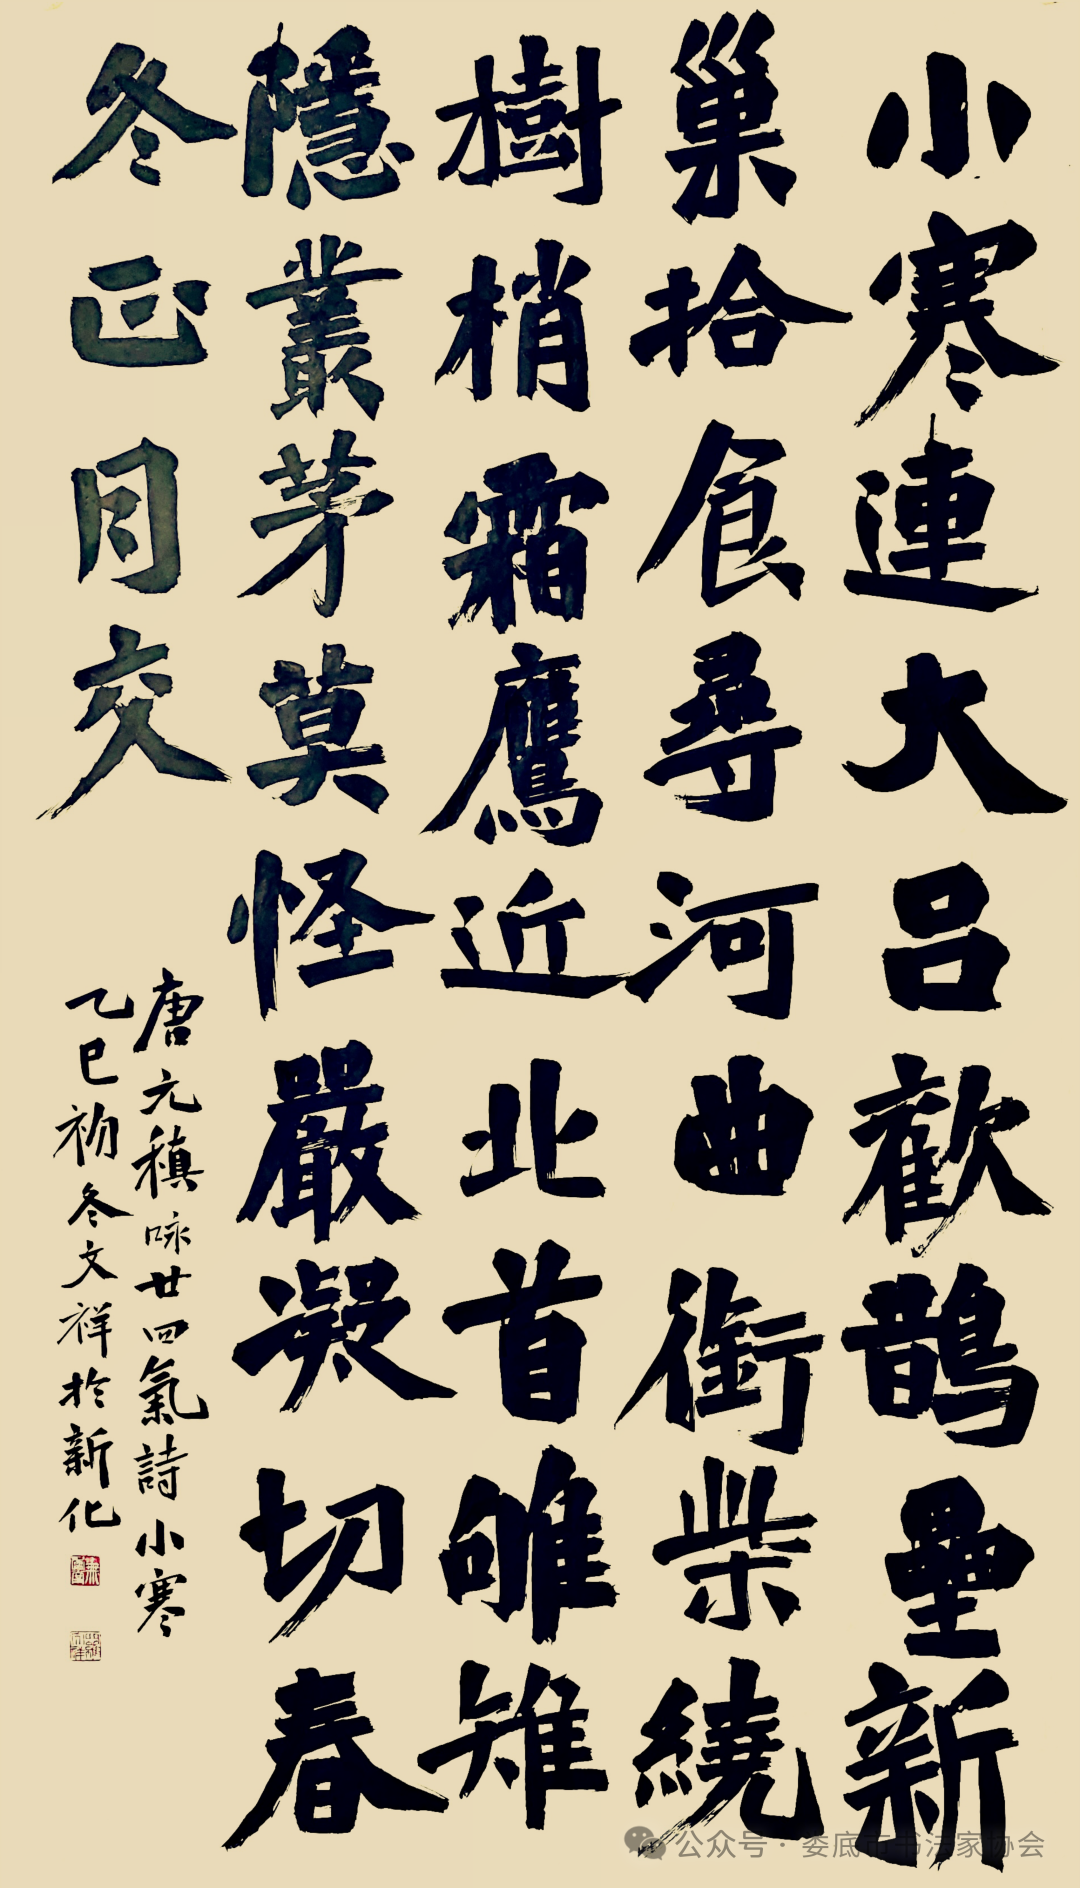 小寒連大吕歡鵲壘新
巢拾食尋河曲銜柴繞
樹梢霜鷹近北首雊雉
隱叢茅莫怪嚴凝切春
冬正月交
唐元稹咏廿四氣詩小寒
乙巳初冬文祥於新化
公众号·娄底市书法家协会